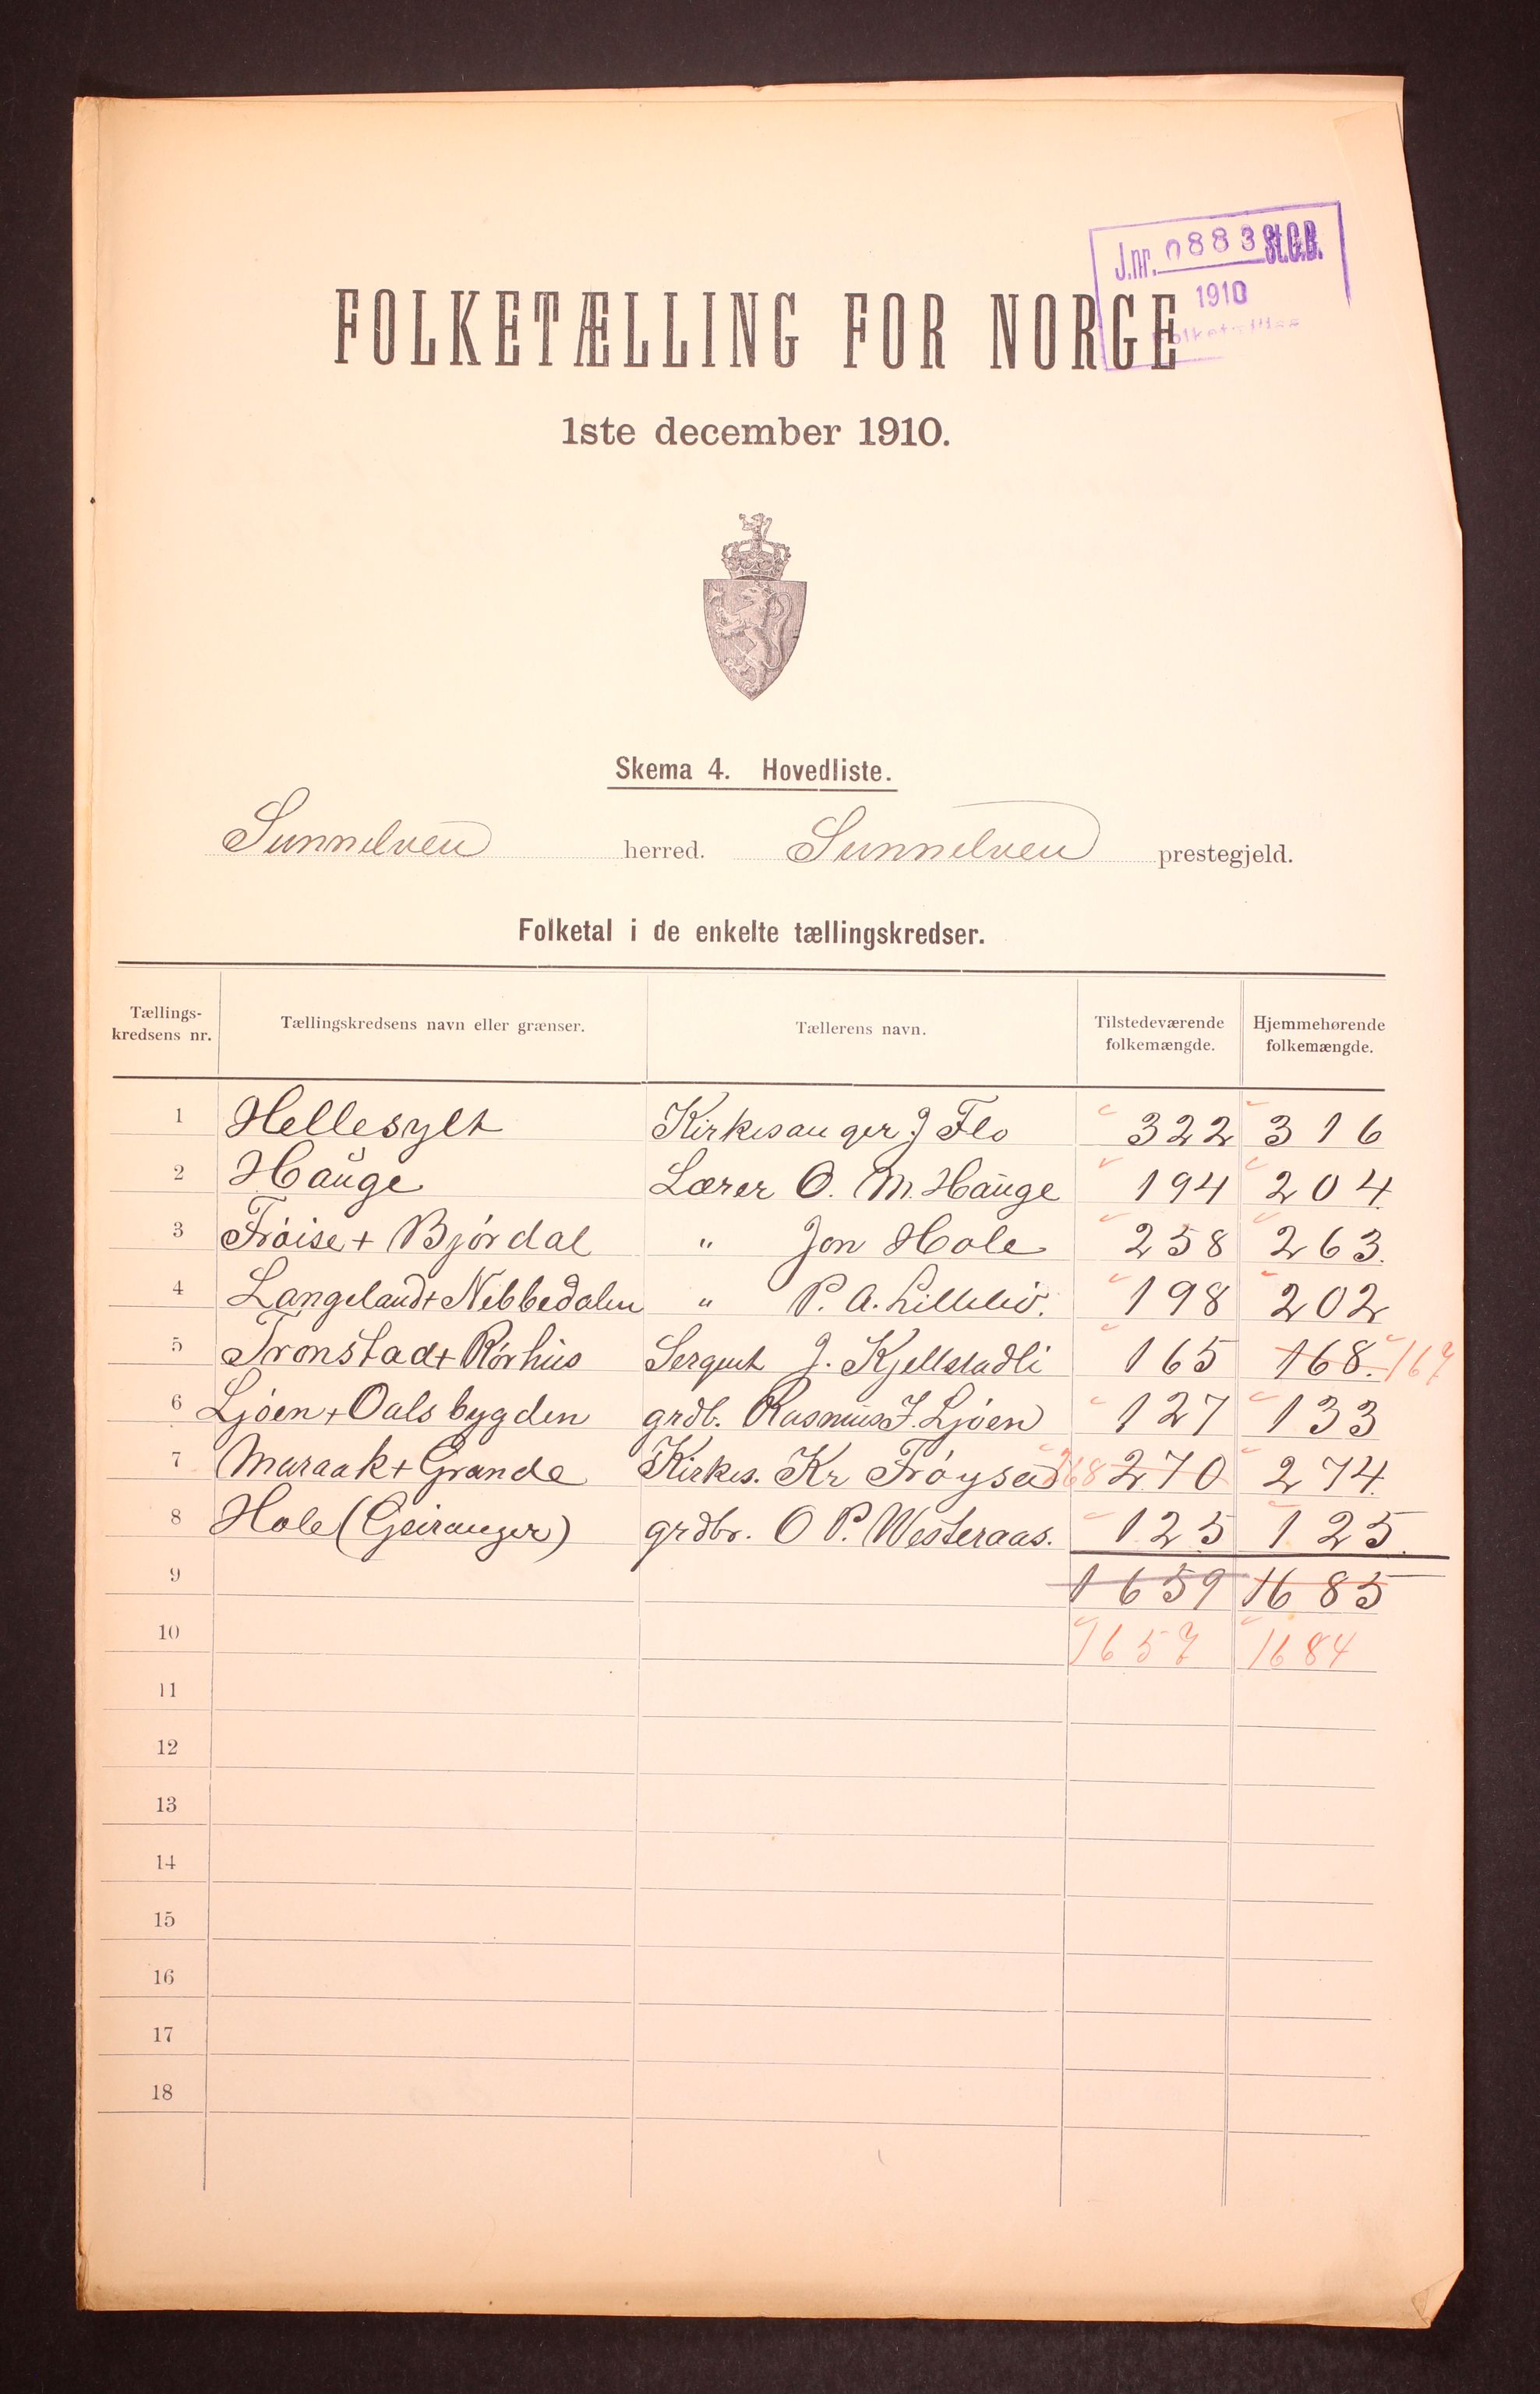 J.nr. 0883 St.C.B.
1910
FOLKETÆLLING FOR NORGE
1ste december 1910.
Skema 4. Hovedliste.
Sunnelven herred. Sunnelven prestegjeld.
Folketal i de enkelte tællingskredser.
Tællings-kredsens nr. Tællingskredsens navn eller grænser. Tællerens navn. Tilstedeværende folkemængde. Hjemmehørende folkemængde.
1 Hellesylt Kirkesanger J Flo 322 316
2 Hauge Lærer O. M. Hauge 194 204
3 Frøise + Bjørdal " Jon Hole 258 263.
4 Langeland + Nibbedalen " P. A. Lillebø. 198 202
5 Tronstad + Rørhus Sergent J. Kjellstadli 165 168. 167
6 Ljøen + Oalsbygden grdb. Rasmus J. Ljøen 127 133
7 Maraak + Grande Kirkes. Kr Frøysa 268 270 274.
8 Hole (Geiranger) grdbr. O P. Westeraas. 125 125.
9 1659 1685
10 1657 1684
11
12
13
14
15
16
17
18